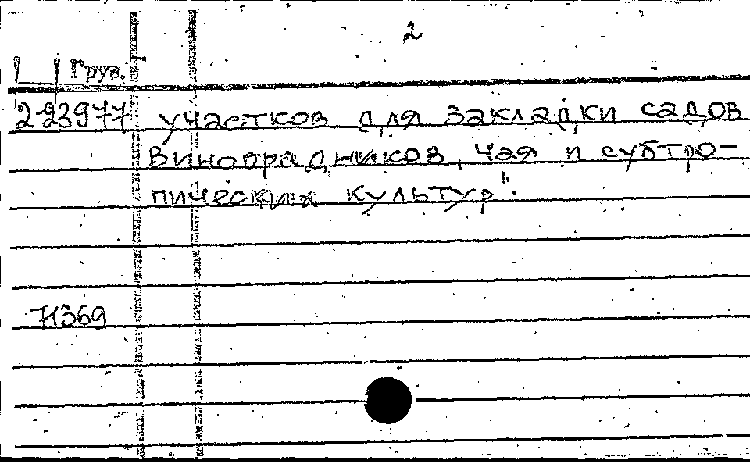 2
Груз.
2-23977 участков для закладки садов
виноградников, чая и субтро-
пических культур".
71369